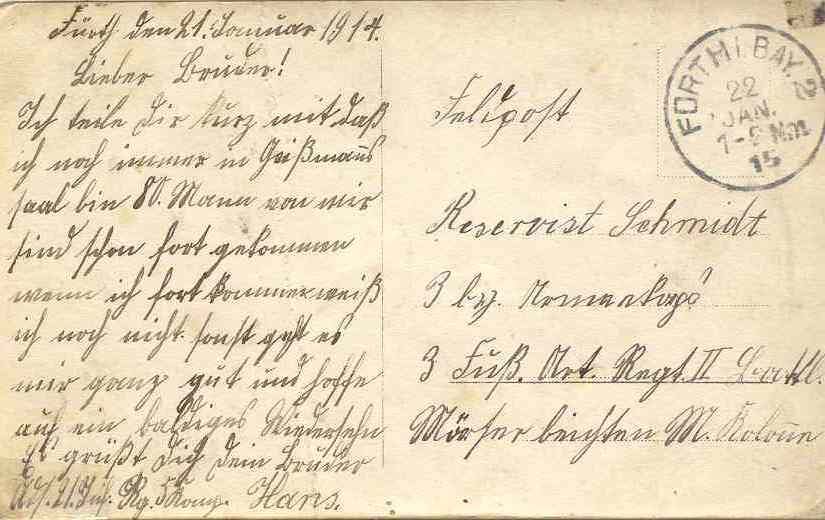 Fürth den 21. Januar 1914.
Lieber Bruder!
Ich teile dir kurz mit daß
ich noch immer in Geißmanns
saal bin 80. Mann von wir
sind schon fort gekommen
wenn ich fort komme weiß
ich noch nicht sonst geht es
mir ganz gut und hoffe
auf ein baldiges Wiedersehn
Es grüßt Dich dein Bruder
Adr. 21. Inf. Rg. 5 Komp. Hans.
FÜRTH I. BAY. 2
22
JAN.
1-2 Nm
15
Feldpost
Reservist Schmidt
3 by. Armeekorps
3 Fuß. Art. Regt. II Battl.
Mörser leichten M. Kolonne